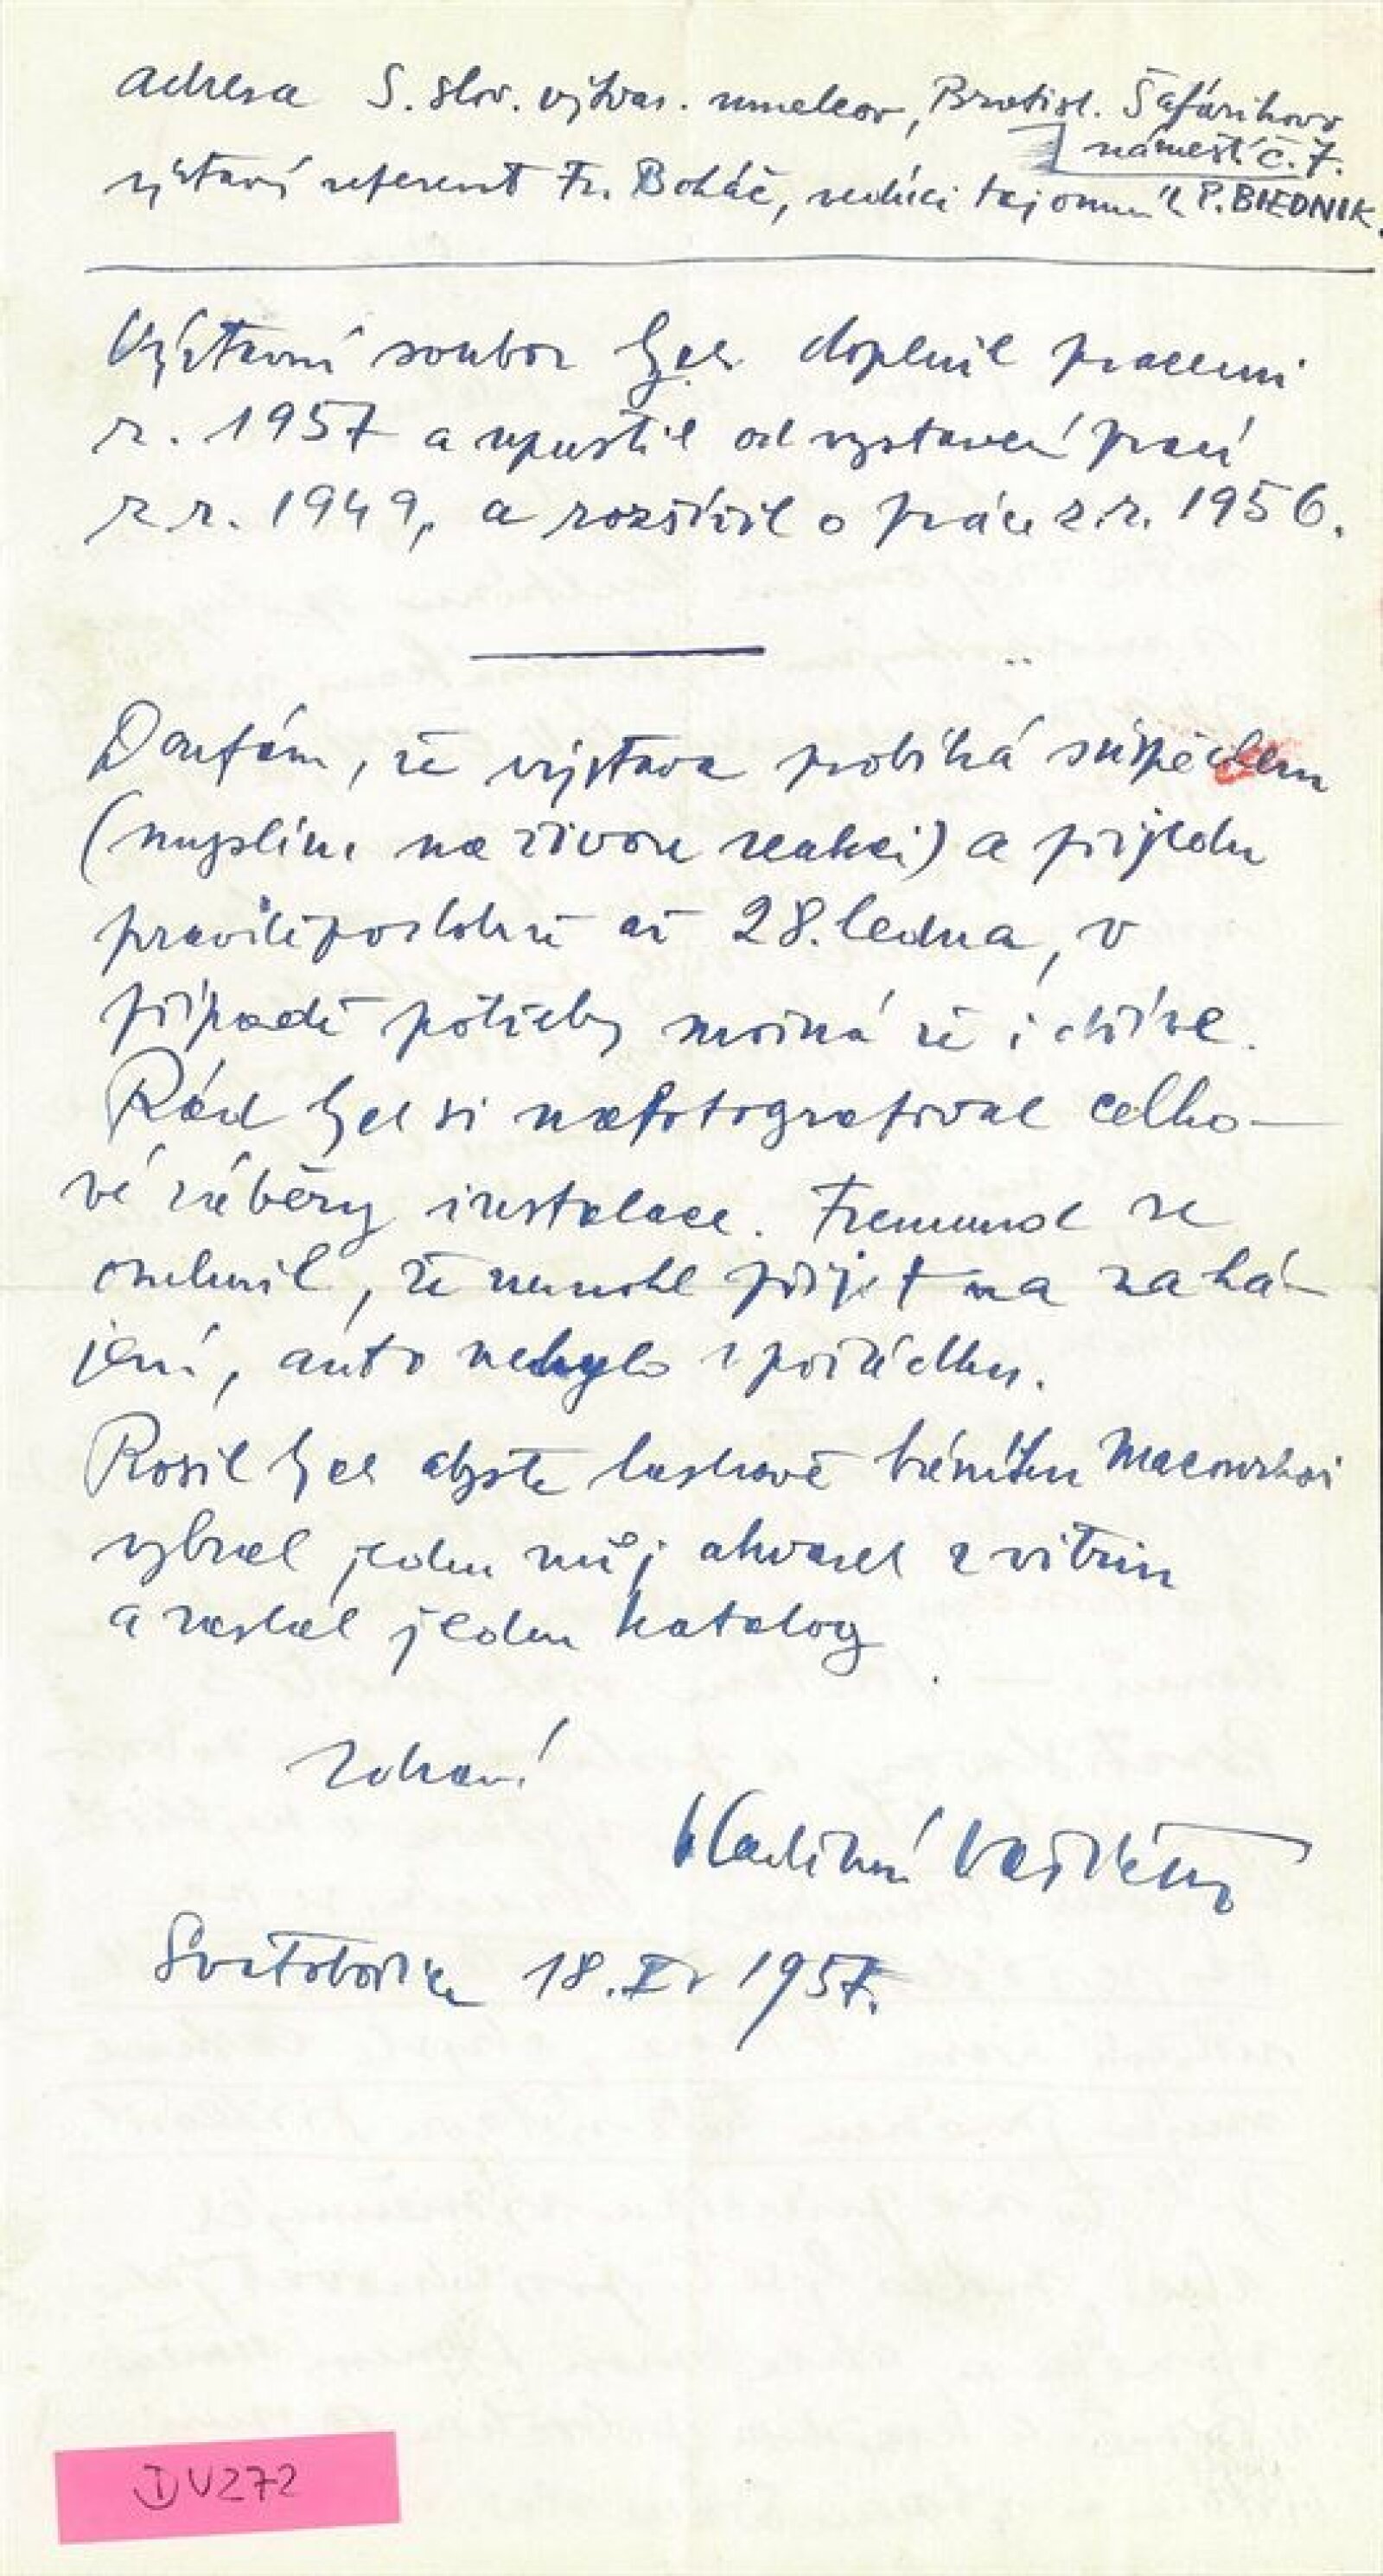 adresa S. slov. výtvar. umelcov, Bratisl. Šafárikovo
námestí č. 7.
výstavní referent Fr. Boháč, vedúci tajomník P. BIEDNIK.
Výstavní soubor bych doplnil pracemi
z r. 1957 a upustil od vystavení prací
z r. 1949, a rozšířil o práce z r. 1956.
Doufám, že výstava probíhá s úspěchem
(myslím na živou reakci) a přijedu
pravděpodobně až 28. ledna, v
případě potřeby možná že i dříve.
Rád bych si nafotografoval celko-
vé záběry instalace. Fremund se
omluvil, že nemohl přijet na zahá-
jení, auto nebylo v pořádku.
Prosil bych abyste laskavě básníku Macourkovi
vybral jeden můj akvarel z vitrin
a zaslal jeden katalog.
Zdraví
Vladimír Vašíček
Svatobořice 18. 1957.
IV272